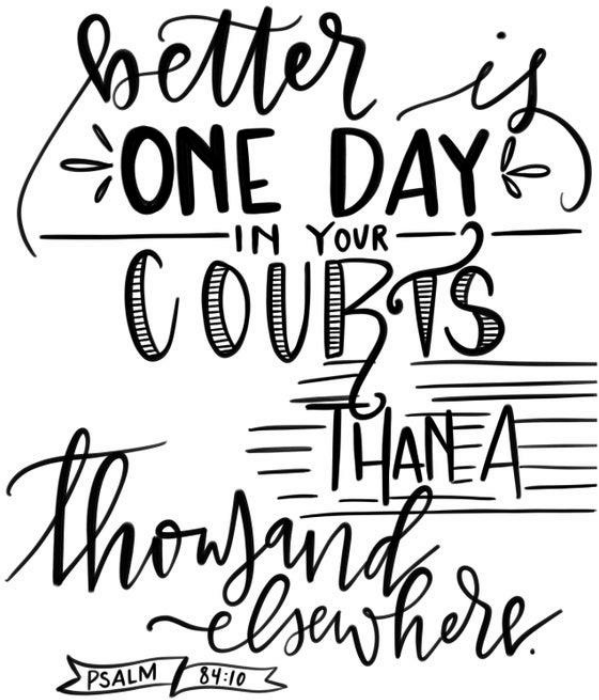 better is
ONE DAY
IN YOUR
COURTS
THAN A
thousand
elsewhere.
PSALM 84:10